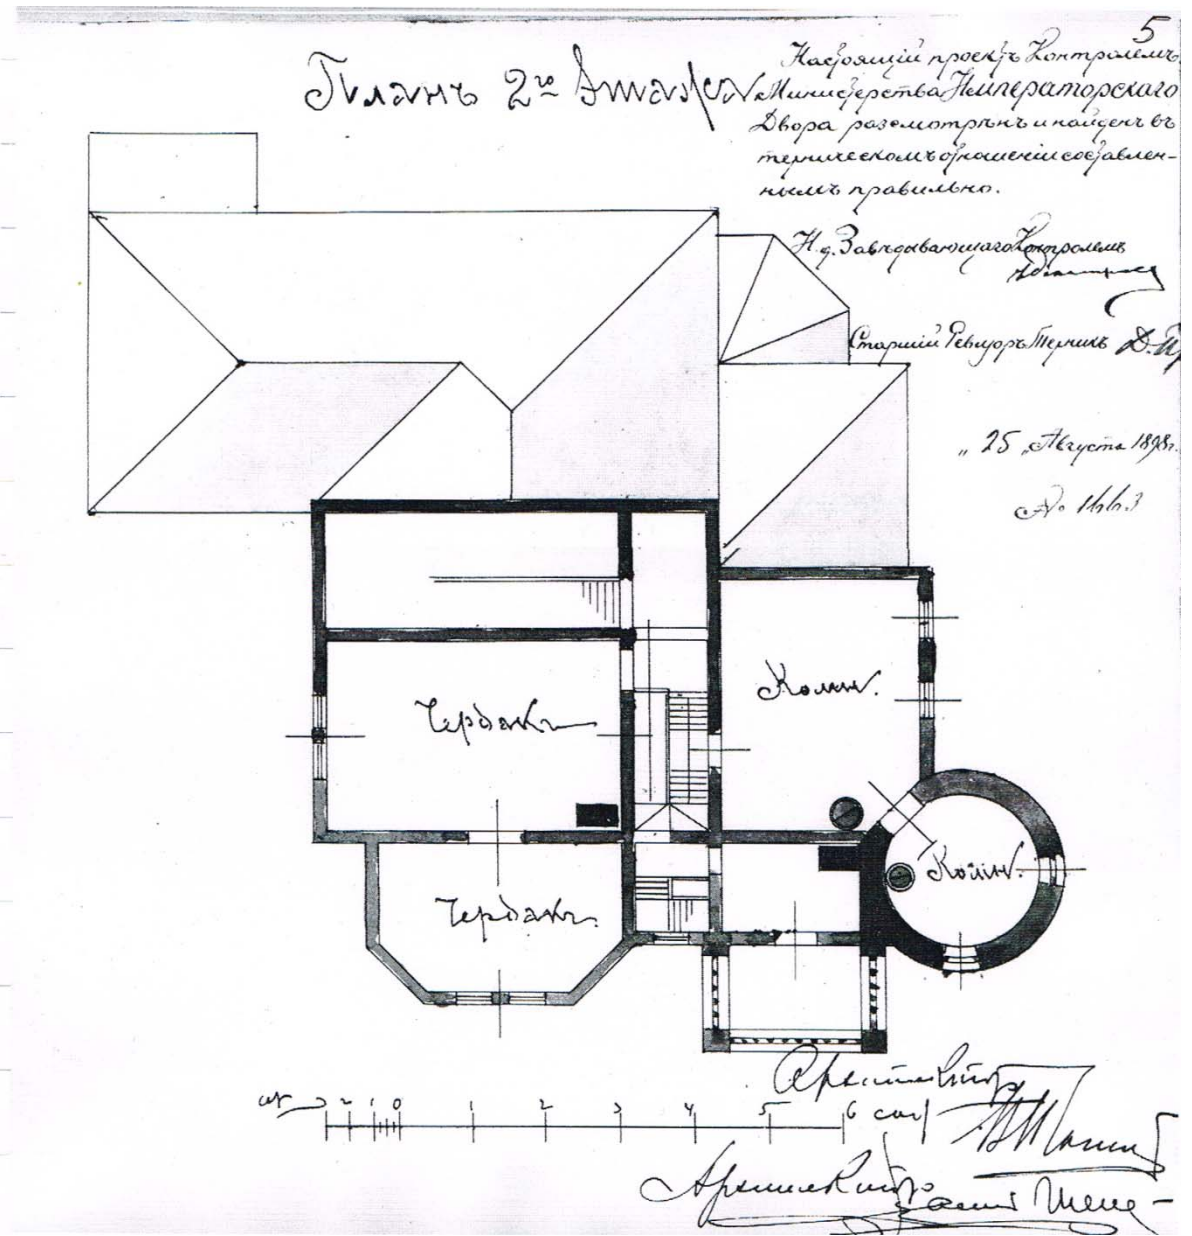 5
Планъ 2го Этажа
Настоящій проектъ Контролемъ
Министерства Императорскаго
Двора разсмотрѣнъ и найденъ въ
техническомъ отношеніи составлен-
нымъ правильно.
И.д. Завѣдывающаго Контролемъ
Старшій Ревизоръ Техникъ
„ 25 „ Августа 1898 г.
Чердакъ
Комн.
Чердакъ
Комн.
3 2 1 0 1 2 3 4 5 6 саж
Архитекторъ
Архитекторъ